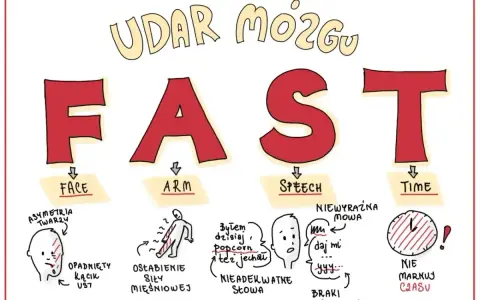 UDAR MÓZGU
FAST
FACE
ARM
SPEECH
TIME
ASYMETRIA
TWARZY
OPADNIĘTY
KĄCIK
UST
OSŁABIENIE
SIŁY
MIĘŚNIOWEJ
Byłem
dzisiaj
popcorn
też jechali
NIEADEKWATNE
SŁOWA
NIEWYRAŹNA
MOWA
daj mi
yyy
BRAKI
NIE
MARNUJ
CZASU
!